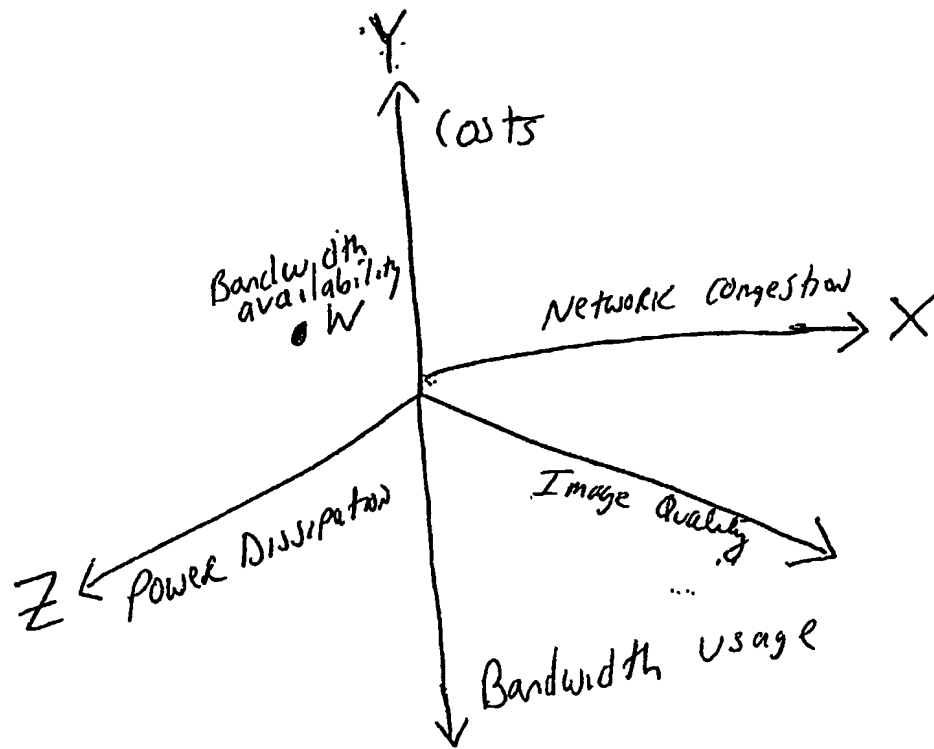 Y
Costs
Bandwidth
availability
W
Network Congestion
X
Image Quality
Power Dissipation
Z
...
Bandwidth usage